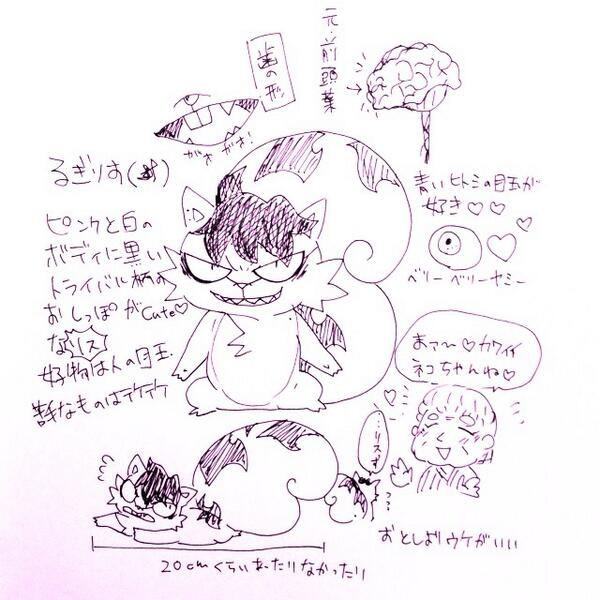 歯の形
元・前頭葉
がおがお!
るぎりす(♂)
ピンクと白の
ボディに黒い
トライバル柄の
おしっぽがCute♡
なリス
好物は人の目玉
青いヒトミの目玉が
好き♡♡
ベリーベリーヤミー
まァ〜♡カワイイ
ネコちゃんね♡
…リスす
おとしよりウケがいい
20cmくらいあったりなかったり